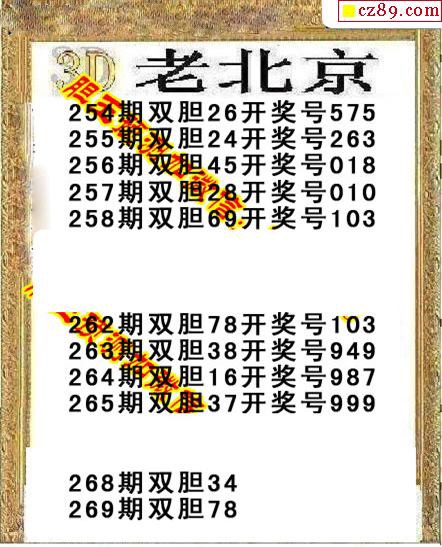 cz89.com
3D 老北京
254期双胆26开奖号575
255期双胆24开奖号263
256期双胆45开奖号018
257期双胆28开奖号010
258期双胆69开奖号103
262期双胆78开奖号103
263期双胆38开奖号949
264期双胆16开奖号987
265期双胆37开奖号999
268期双胆34
269期双胆78